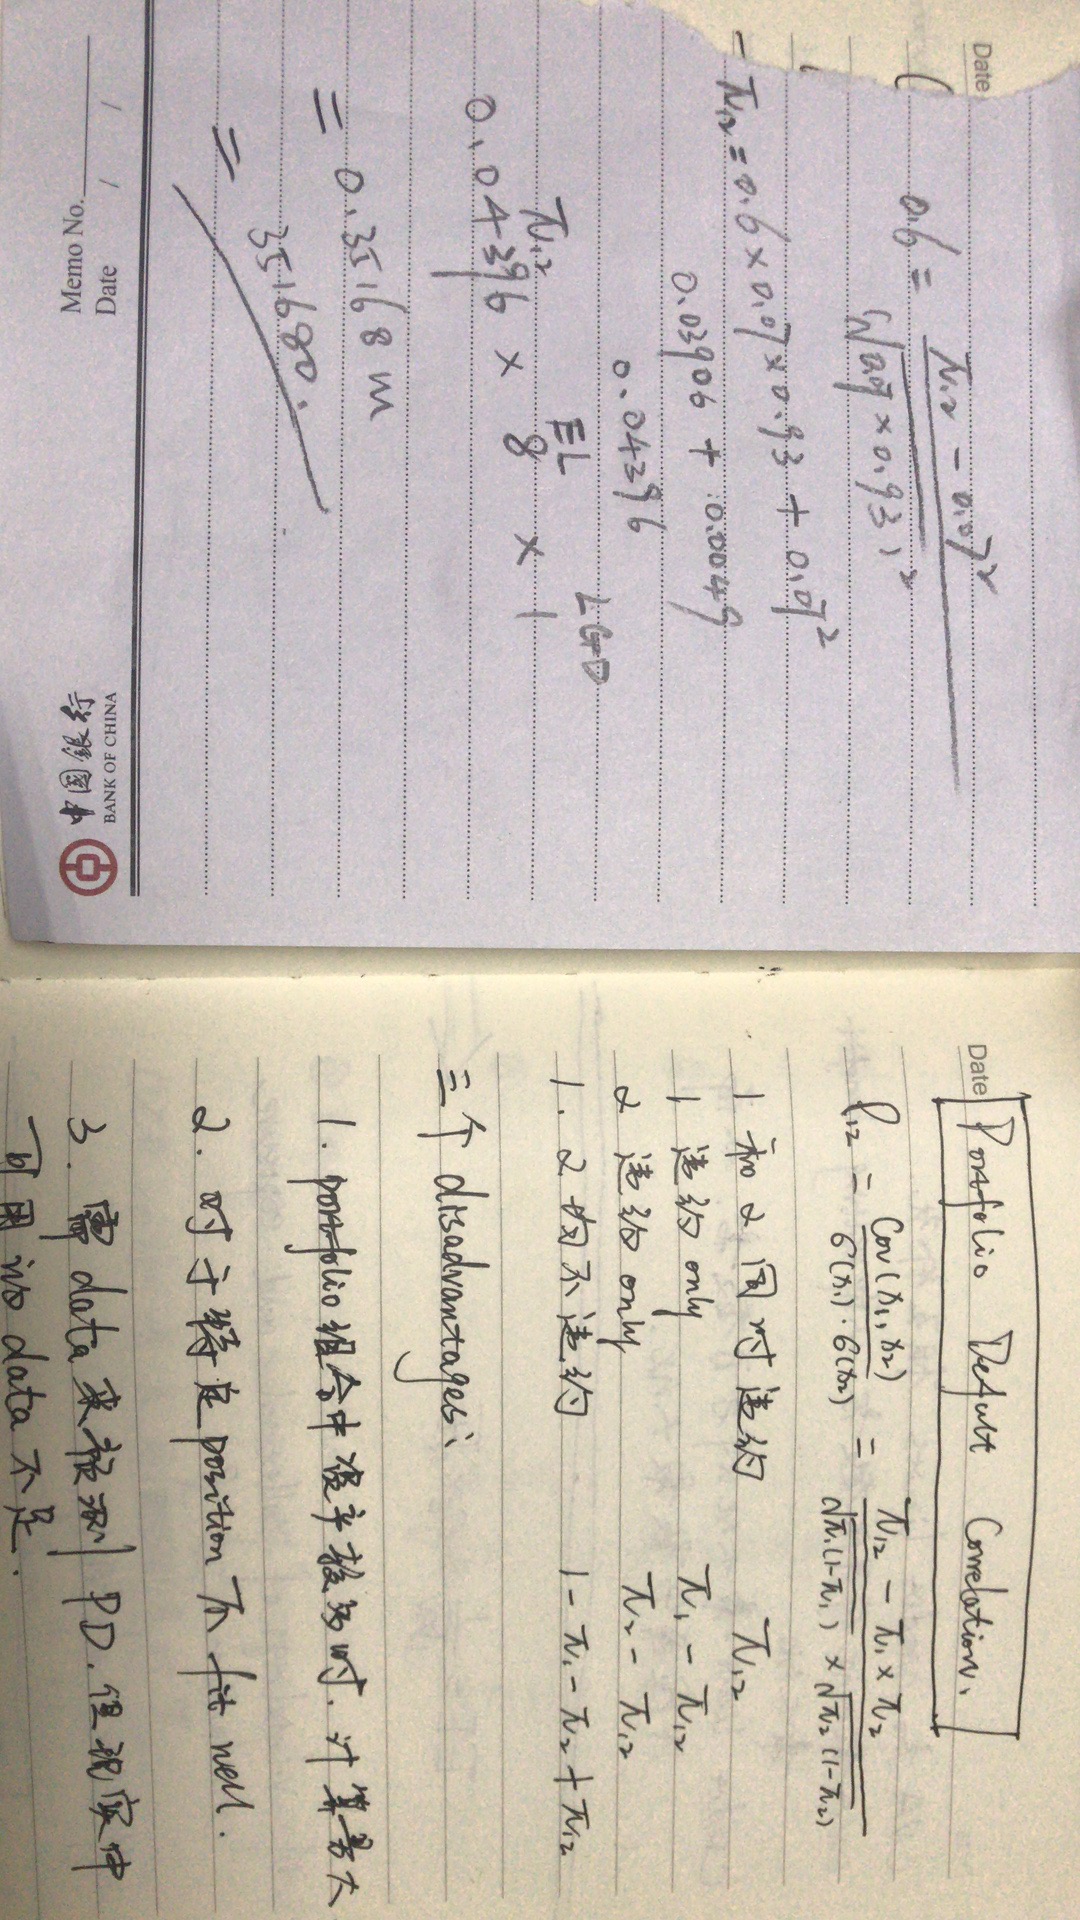 Date
0.6 = π₁₂ - 0.07² / (√0.07 × 0.93)²
π₁₂ = 0.6 × 0.07 × 0.93 + 0.07²
0.03906 + 0.0049
0.04396
π₁₂ EL LGD
0.04396 × 8 × 1
= 0.35168 m
= 351680.
Memo No.
Date / /
中国银行
BANK OF CHINA
Date
Portfolio Default Correlation.
ρ₁₂ = Cov(x₁, x₂) / σ(x₁)·σ(x₂) = π₁₂ - π₁ × π₂ / √π₁(1-π₁) × √π₂(1-π₂)
1 和 2 同时违约 π₁₂
1 违约 only π₁ - π₁₂
2 违约 only π₂ - π₁₂
1. 2 均不违约 1 - π₁ - π₂ + π₁₂
三个 disadvantages:
1. portfolio 组合中 较多时. 计算量大
2. 对于特定 position 不 fit well.
3. 需 data 来 PD. 但现实中
可用 data 不足.